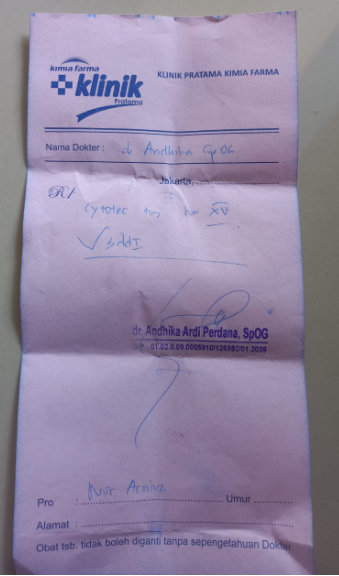 kimia farma
klinik
Pratama
KLINIK PRATAMA KIMIA FARMA
Nama Dokter : dr Andhika SpOG
Jakarta, ....................
R/
Cytotec tab no XV
dr. Andhika Ardi Perdana, SpOG
Pro :
Umur ............
Alamat : ............................................
Obat tsb. tidak boleh diganti tanpa sepengetahuan Dokter